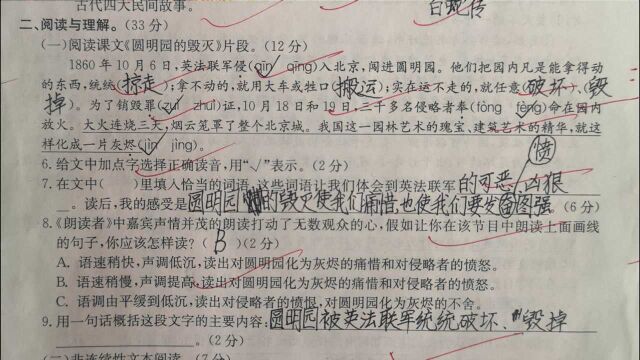 古代四大民间故事。 白蛇传
二、阅读与理解。(33 分)
(一)阅读课文《圆明园的毁灭》片段。(12 分)
1860 年 10 月 6 日,英法联军侵(qīn qīng)入北京,闯进圆明园。他们把园内凡是能拿得动
的东西,统统(掠走);拿不动的,就用大车或牲口(搬运);实在运不走的,就任意(破坏)、(毁
掉)。为了销毁罪(zuì zhuì)证,10 月 18 日和 19 日,三千多名侵略者奉(fòng fèng)命在园内
放火。大火连烧三天,烟云笼罩了整个北京城。我国这一园林艺术的瑰宝、建筑艺术的精华,就这
样化成一片灰烬(jìn jìng)。
愤
6. 给文中加点字选择正确读音,用“√”表示。(2 分)
7. 在文中( )里填入恰当的词语,这些词语让我们体会到英法联军的可恶,凶狠
。读后,我的感受是圆明园的毁灭使我们痛惜,也使我们要发奋图强。(6 分)
8.《朗读者》中嘉宾声情并茂的朗读打动了无数观众的心,假如让你在该节目中朗读上面画线
的句子,你应该怎样读?( B )(2 分)
A. 语速稍快,声调低沉,读出对圆明园化为灰烬的痛惜和对侵略者的愤怒。
B. 语速稍慢,声调提高,读出对圆明园化为灰烬的痛惜和对侵略者的愤怒。
C. 语调由平缓到低沉,读出对侵略者的愤恨,对圆明园化为灰烬的不舍。
9. 用一句话概括这段文字的主要内容:圆明园被英法联军统统破坏、毁掉
。(2 分)
(二)非连续性文本阅读。(7 分)